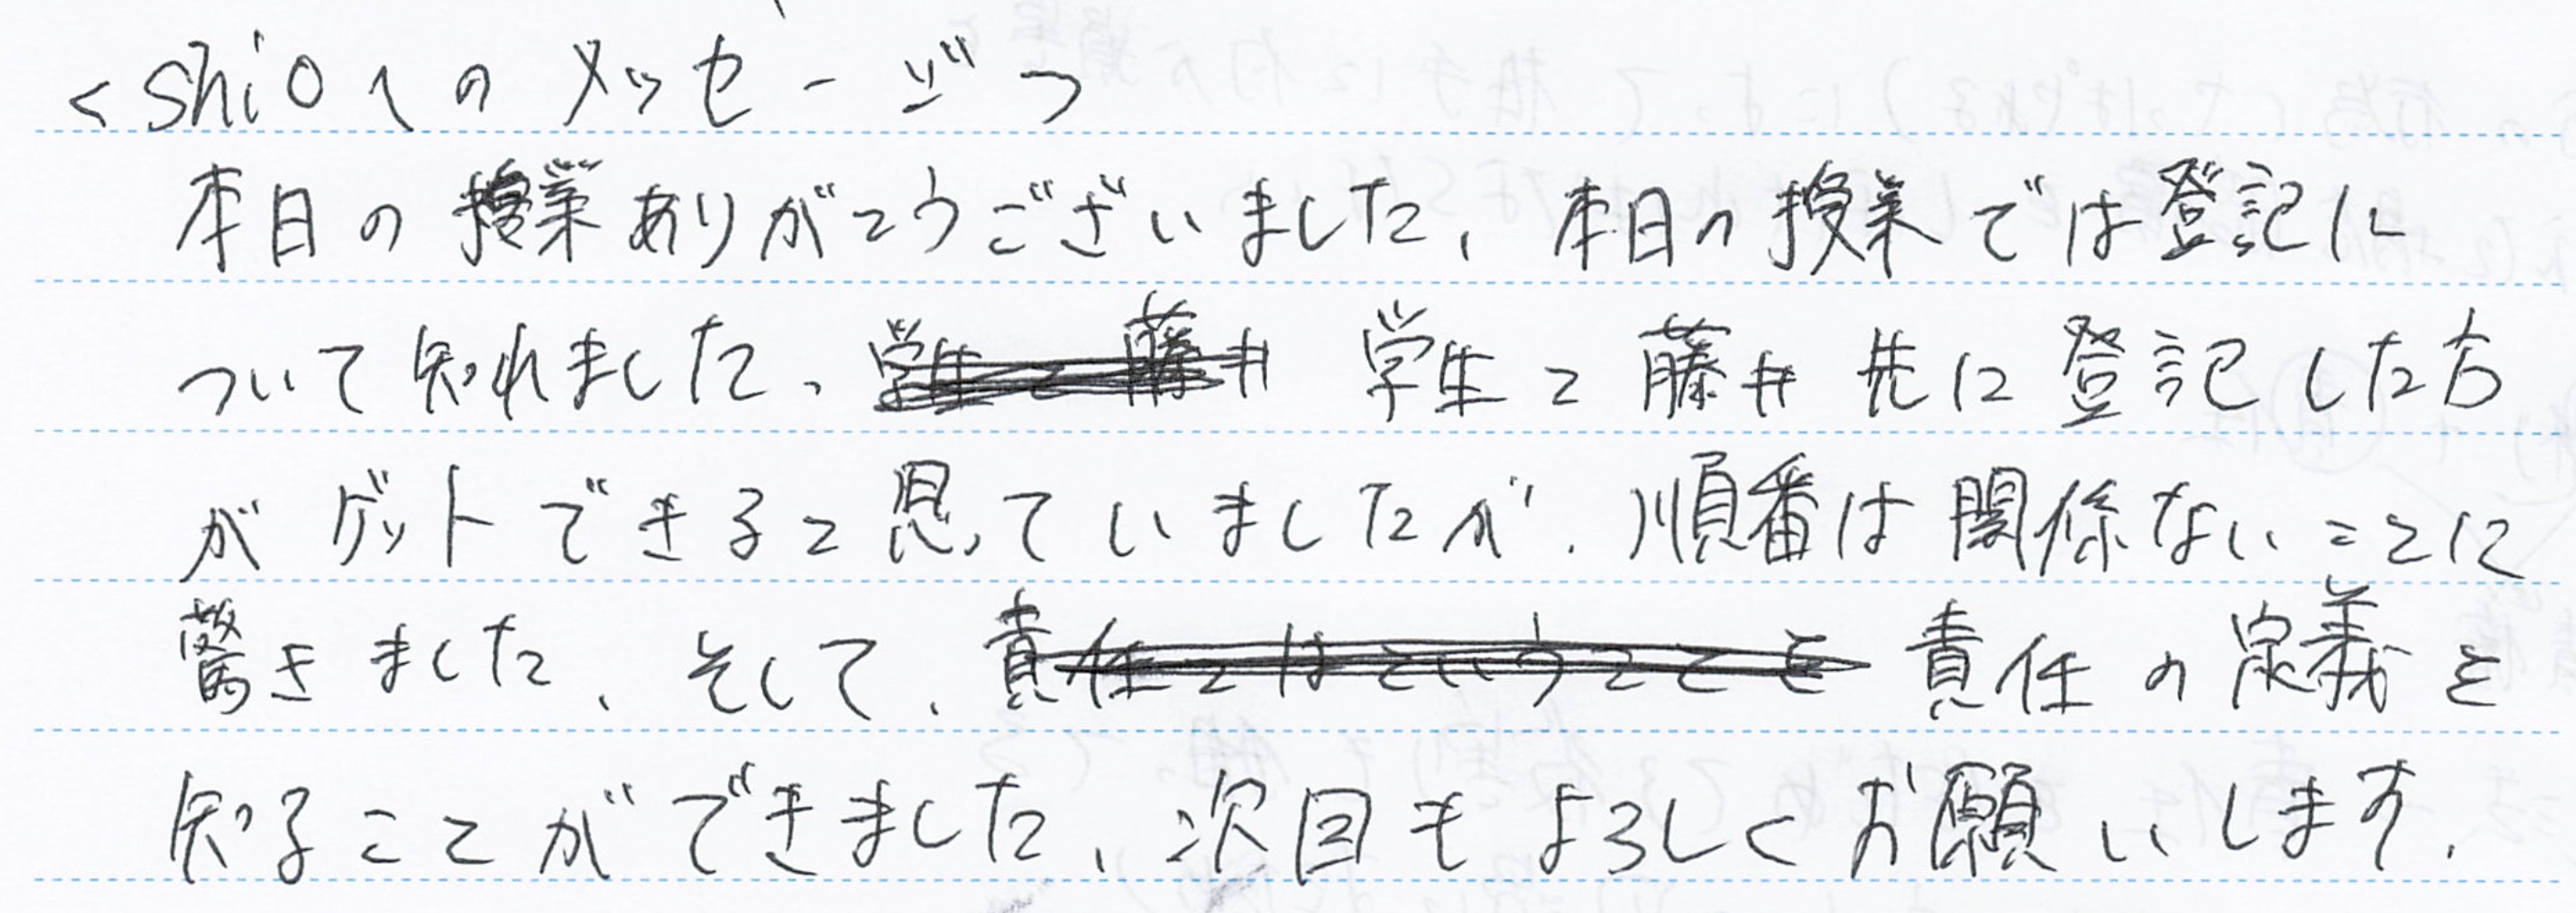 <shioへのメッセージ>
本日の授業ありがとうございました。本日の授業では登記に
ついて知れました。学生と藤井 学生と藤井先に登記した方
がゲットできると思っていましたが、順番は関係ないことに
驚きました。そして、責任とはということを 責任の定義を
知ることができました。次回もよろしくお願いします。